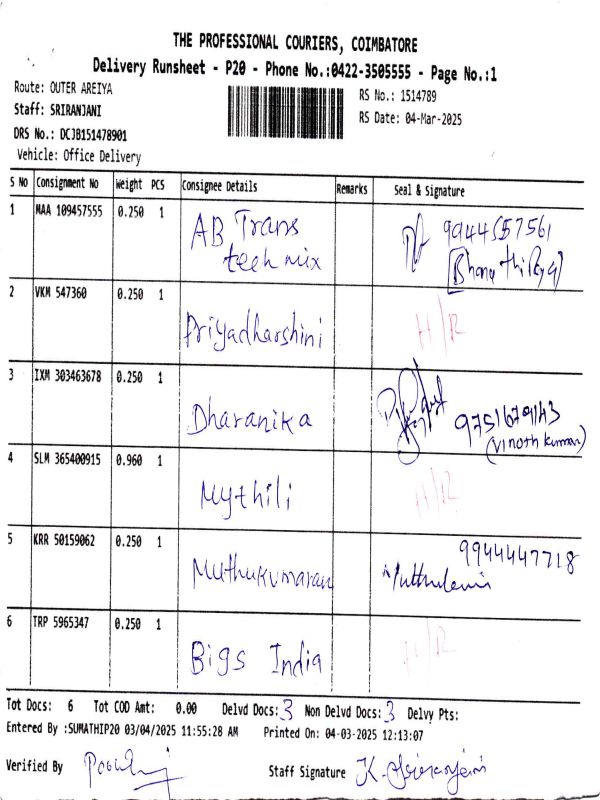 THE PROFESSIONAL COURIERS, COIMBATORE
Delivery Runsheet - P20 - Phone No.:0422-3505555 - Page No.:1
Route: OUTER AREIYA
RS No.: 1514789
Staff: SRIRANJANI
RS Date: 04-Mar-2025
DRS No.: DCJB151478901
Vehicle: Office Delivery
S No Consignment No Weight PCS Consignee Details Remarks Seal & Signature
1 MAA 109457555 0.250 1 AB Trans
tech mix
2 VKM 547360 0.250 1 Priyadharshini H/R
3 IXM 303463678 0.250 1 Dharanika
(Vinoth kumar)
4 SLM 365400915 0.960 1 Mythili H/R
5 KRR 50159062 0.250 1 Muthukumaran 9944447718
6 TRP 5965347 0.250 1 Bigs India H/R
Tot Docs: 6 Tot COD Amt: 0.00 Delvd Docs: 3 Non Delvd Docs: 3 Delvy Pts:
Entered By :SUMATHIP20 03/04/2025 11:55:28 AM Printed On: 04-03-2025 12:13:07
Verified By Staff Signature